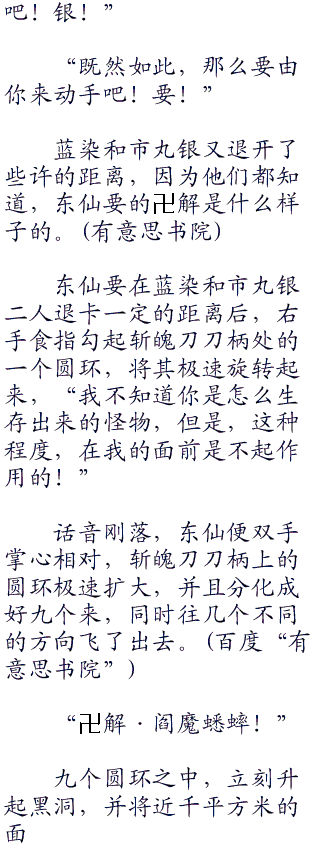 吧！银！”
“既然如此，那么要由
你来动手吧！要！”
蓝染和市丸银又退开了
些许的距离，因为他们都知
道，东仙要的卍解是什么样
子的。(有意思书院)
东仙要在蓝染和市丸银
二人退卡一定的距离后，右
手食指勾起斩魄刀刀柄处的
一个圆环，将其极速旋转起
来，“我不知道你是怎么生
存出来的怪物，但是，这种
程度，在我的面前是不起作
用的！”
话音刚落，东仙便双手
掌心相对，斩魄刀刀柄上的
圆环极速扩大，并且分化成
好九个来，同时往几个不同
的方向飞了出去。(百度“有
意思书院”)
“卍解·阎魔蟋蟀！”
九个圆环之中，立刻升
起黑洞，并将近千平方米的
面